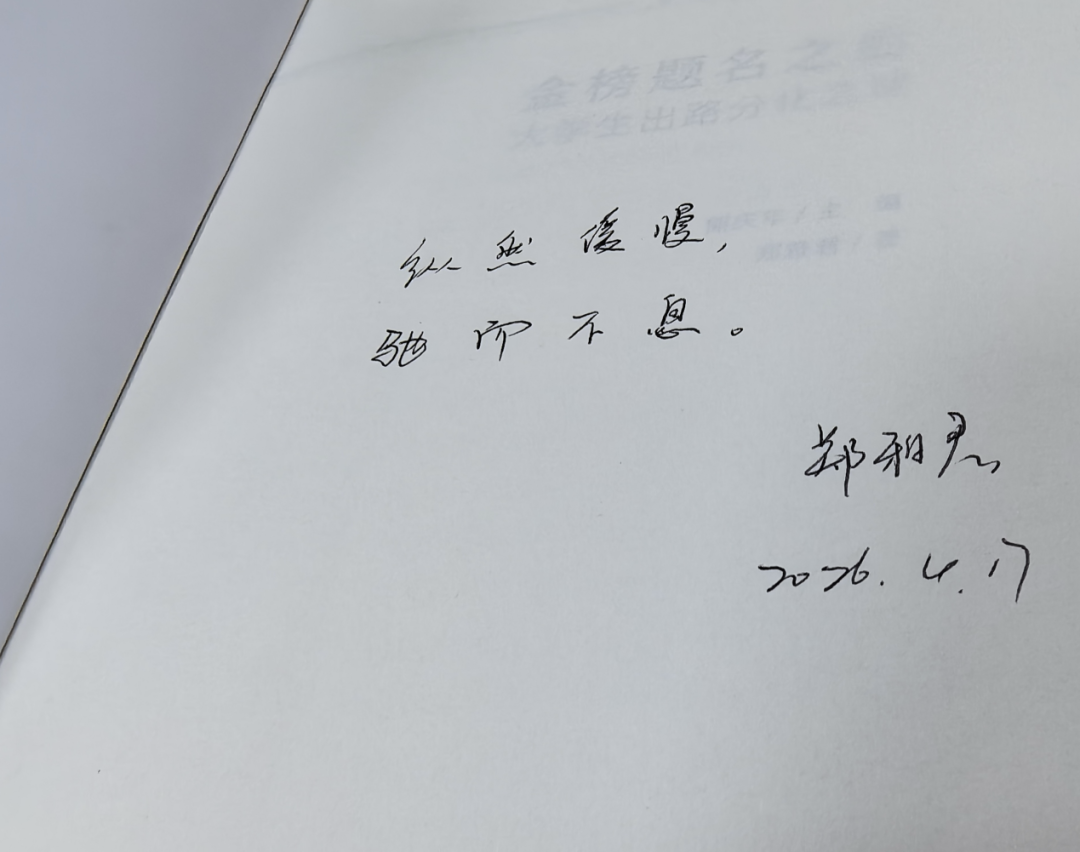 金榜题名之后
大学生出路分化之谜
主 编
郑雅君 / 著
纵然缓慢，
驰而不息。
郑雅君
2026.4.17